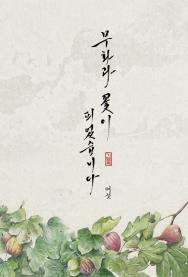 무화과 꽃이
피었습니다
여섯